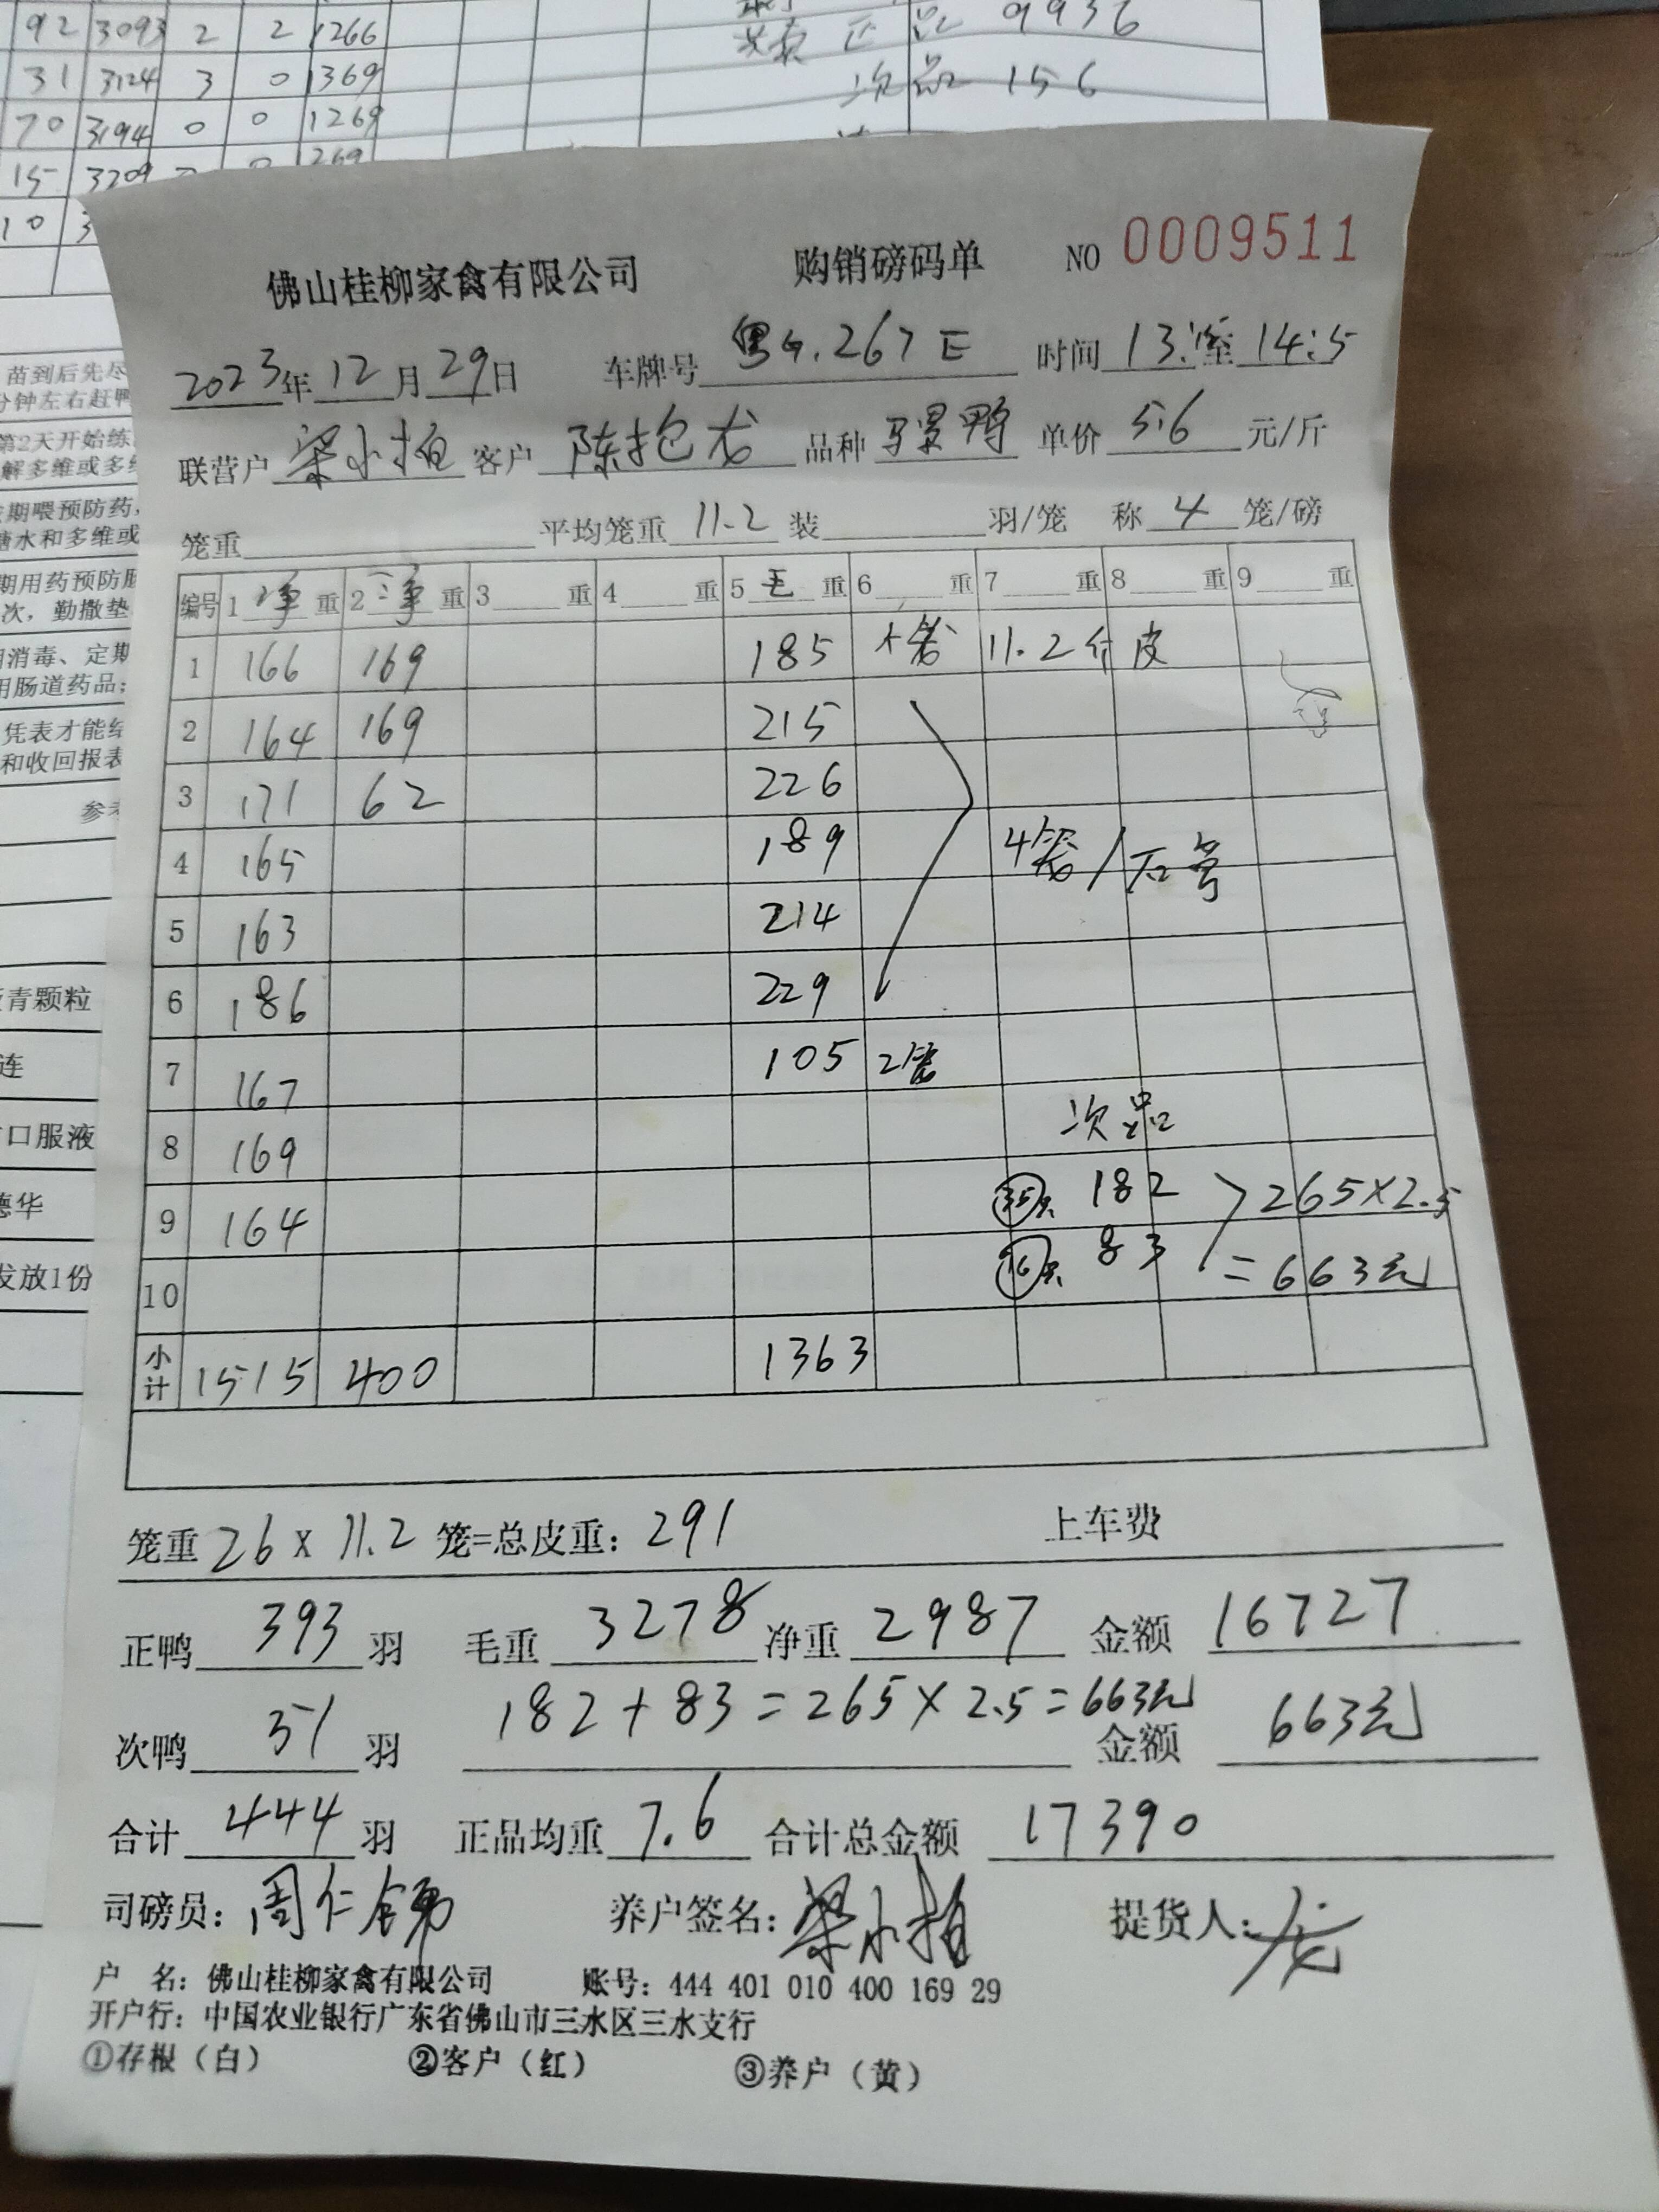 92 3093 2 2 1266
31 3124 3 0 1369
70 3194 0 0 1269
15 3209 0 1269
10 3
正品 9936
次品 156
苗到后先尽
分钟左右赶鸭
第2天开始练
解多维或多维
期喂预防药，
糖水和多维或
期用药预防肠
次，勤撒垫
消毒、定期
用肠道药品；
凭表才能结
和收回报表
参考
青颗粒
连
口服液
德华
发放1份
佛山桂柳家禽有限公司 购销磅码单 NO 0009511
2023年12月29日 车牌号 粤G.267E 时间 13: 至 14:5
联营户 梁小柏 客户 陈抱龙 品种 鸭 单价 5.6 元/斤
笼重 平均笼重 11.2 装 羽/笼 称 4 笼/磅
编号 1 净 重 2 净 重 3 重 4 重 5 毛 重 6 重 7 重 8 重 9 重
1 166 169 185 11.2斤 皮
2 164 169 215
3 171 62 226
4 165 189 4笼/
5 163 214
6 186 229
7 167 105 2笼
8 169 次品
9 164 35只 182 265×2.5
10 16只 83 =663元
小计 1515 400 1363
笼重 26 x 11.2 笼=总皮重：291 上车费
正鸭 393 羽 毛重 3278 净重 2987 金额 16727
次鸭 51 羽 182+83=265×2.5=663元 金额 663元
合计 444 羽 正品均重 7.6 合计总金额 17390
司磅员：周仁 养户签名：梁小柏 提货人：龙
户 名：佛山桂柳家禽有限公司 账号：444 401 010 400 169 29
开户行：中国农业银行广东省佛山市三水区三水支行
①存根（白） ②客户（红） ③养户（黄）